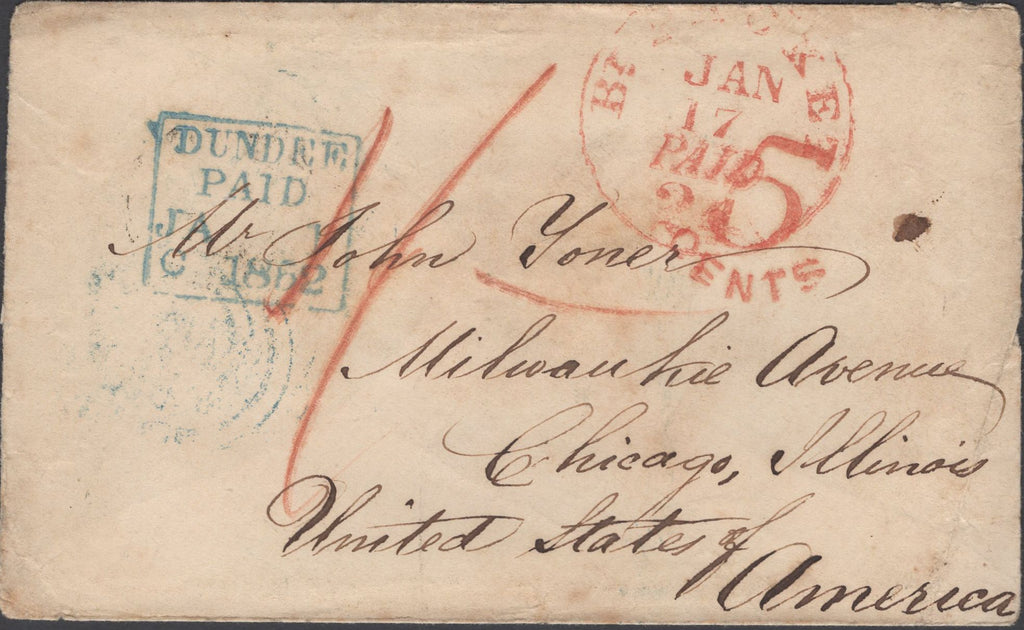 DUNDEE
PAID
JA 1
C 1862
JAN
17
PAID
24
CENTS
5
1/
Mr John Toner
Milwaukie Avenue
Chicago, Illinois
United States of
America